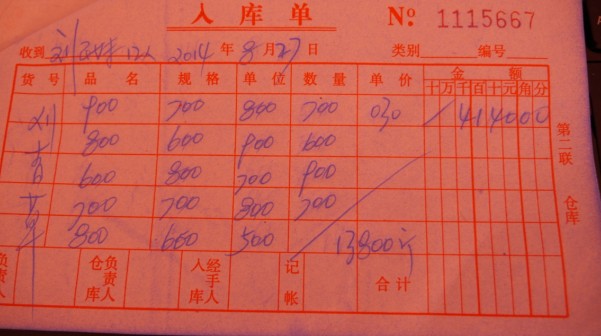 入库单 № 1115667
收到 刘 12人 2014年8月27日 类别 编号
货号 品名 规格 单位 数量 单价 金额
十万千百十元角分
刘 900 700 800 700 030 414000
800 600 900 600
600 800 700 900
700 700 800 700
800 600 500 13800斤
第二联 仓库
负责人 仓库负责人 仓库经手人 记帐 合计